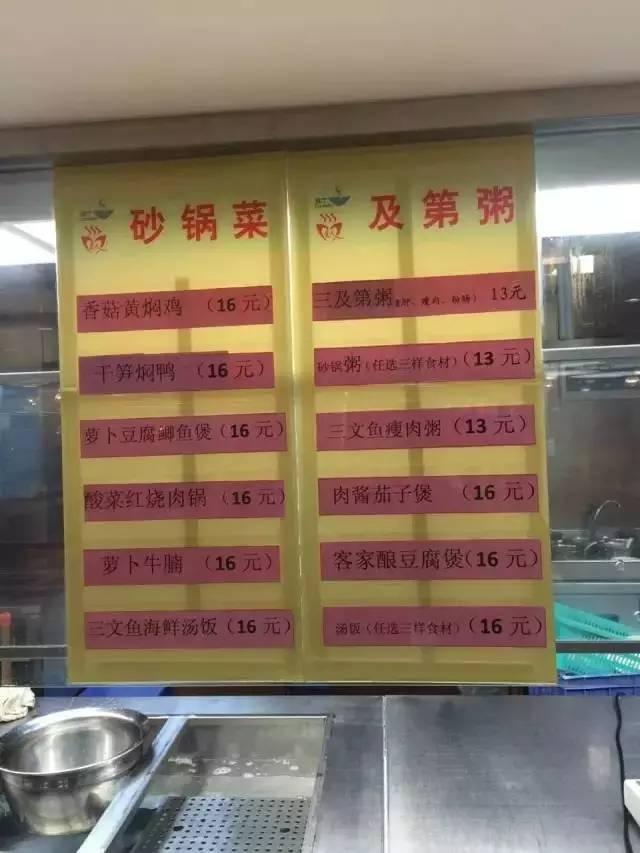 砂锅菜
香菇黄焖鸡 （16 元）
干笋焖鸭 （16 元）
萝卜豆腐鲫鱼煲（16 元）
酸菜红烧肉锅（16 元）
萝卜牛腩 （16 元）
三文鱼海鲜汤饭（16 元）
及第粥
三及第粥 瘦肉、粉肠） 13元
砂锅粥（任选三样食材）（13 元）
三文鱼瘦肉粥 （13 元）
肉酱茄子煲 （16 元）
客家酿豆腐煲（16 元）
汤饭（任选三样食材）（16 元）